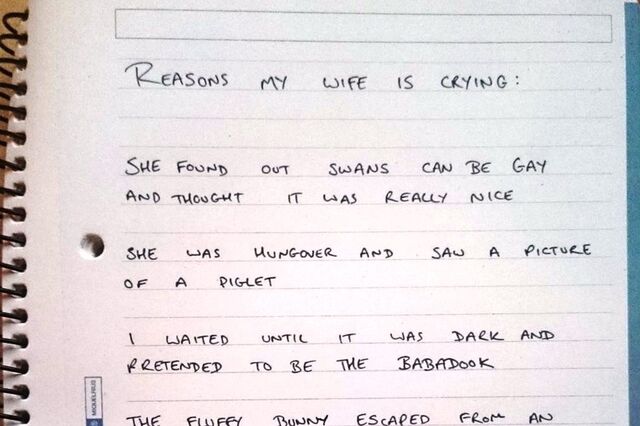 REASONS MY WIFE IS CRYING:
SHE FOUND OUT SWANS CAN BE GAY
AND THOUGHT IT WAS REALLY NICE
SHE WAS HUNGOVER AND SAW A PICTURE
OF A PIGLET
I WAITED UNTIL IT WAS DARK AND
PRETENDED TO BE THE BABADOOK
THE FLUFFY BUNNY ESCAPED FROM AN
MIQUELRIUS